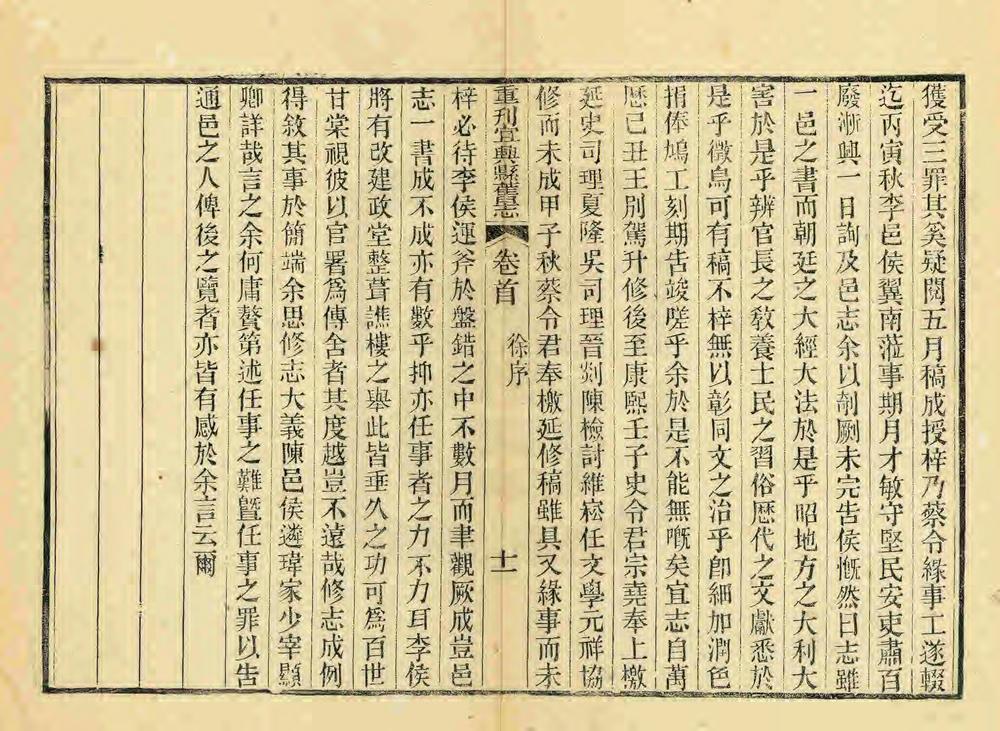 獲受三罪其奚疑閱五月稿成授梓乃蔡令緣事工遂輟
迄丙寅秋李邑侯翼南蒞事期月才敏守堅民安吏肅百
廢漸興一日詢及邑志余以剞劂未完告侯慨然曰志雖
一邑之書而朝廷之大經大法於是乎昭地方之大利大
害於是乎辨官長之敎養士民之習俗歷代之文獻悉於
是乎徵烏可有稿不梓無以彰同文之治乎卽細加潤色
捐俸鳩工刻期告竣嗟乎余於是不能無慨矣宜志自萬
歷己丑王別駕升修後至康熙壬子史令君宗堯奉上檄
延史司理夏隆吳司理晉剡陳檢討維崧任文學元祥協
修而未成甲子秋蔡令君奉檄延修稿雖具又緣事而未
重刊宜興縣舊志 卷首 徐序 十一
梓必待李侯運斧於盤錯之中不數月而聿觀厥成豈邑
志一書成不成亦有數乎抑亦任事者之力不力耳李侯
將有改建政堂整葺譙樓之舉此皆垂久之功可爲百世
甘棠視彼以官署爲傳舍者其度越豈不遠哉修志成例
得敘其事於簡端余思修志大義陳邑侯遴瑋家少宰顯
卿詳哉言之余何庸贅第述任事之難曁任事之罪以告
通邑之人俾後之覽者亦皆有感於余言云爾